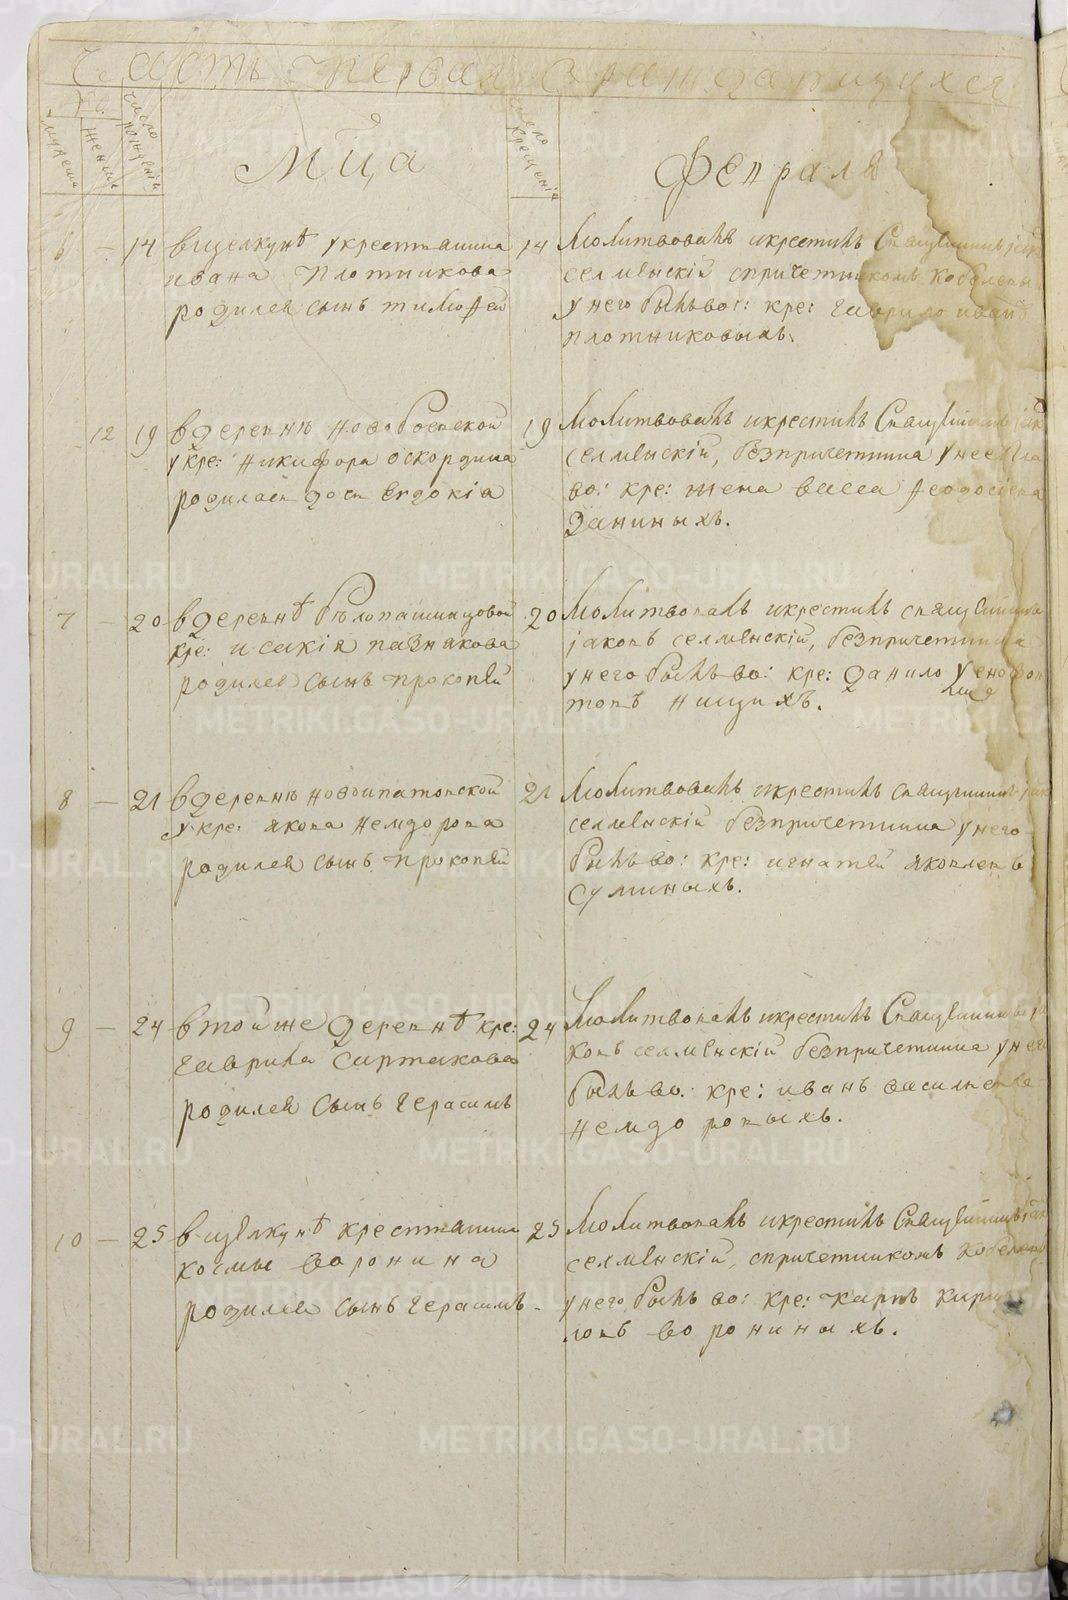 Часть первая о раждающихся
мужеска
женска
число рождения
Мца
число крещения
Февраля
6 — 14 в щелкунѣ у крестьянина
ивана плотникова
родился сынъ тимофей
14 Молитвовалъ и крестилъ Священникъ
селменскій спричетникомъ
у него былъ во: кре: гаврило
плотниковыхъ.
12 19 в деревнѣ новобоевской
у кре: никифора оскордина
родилась дочь Евдокіа
19 Молитвовалъ и крестилъ Священникъ
селменскій, безпричетника у нее
во: кре: жена васса феодосіева
Заниныхъ.
7 — 20 в деревнѣ бѣлопашинцовой
кре: исакія
родился сынъ прокопѣй
20 Молитвовалъ и крестилъ священникъ
іаковъ селменскій, безпричетника
у него былъ во: кре: Данило
нищихъ.
8 — 21 в деревнѣ новоипатовской
у кре: якова немдорова
родился сынъ прокопѣй
21 Молитвовалъ и крестилъ священникъ
селменскій безпричетника у него
былъ во: кре: игнатѣй яковлевъ
суминыхъ.
9 — 24 в той же деревнѣ кре:
гаврила сиртакова
родился сынъ герасимъ
24 Молитвовалъ и крестилъ Священникъ іа
ковъ селменскій безпричетника у него
былъ во: кре: иванъ васильевъ
немдоровыхъ.
10 — 25 в щелкунѣ крестьянина
космы воронина
родился сынъ герасимъ
25 Молитвовалъ и крестилъ Священникъ
селменскій, спричетникомъ
у него былъ во: кре: карпъ кири
ловъ ворониныхъ.
METRIKI.GASO-URAL.RU